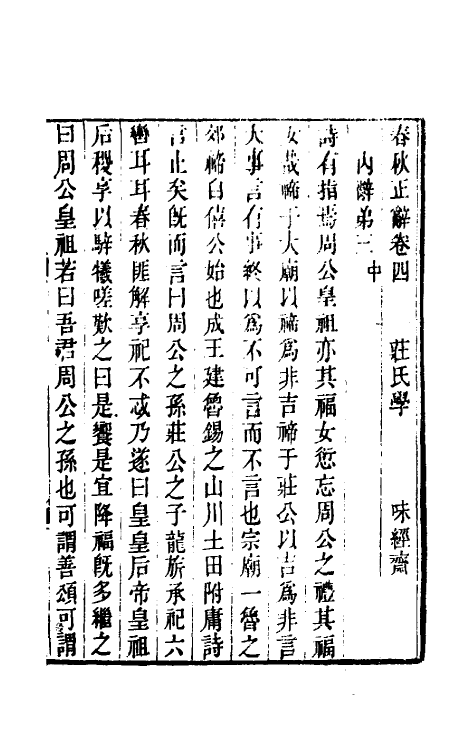 春秋正辭卷四　莊氏學　味經齋
內辭弟三中
詩有指焉周公皇祖亦其福女愆忘周公之禮其福
女哉禘于大廟以禘爲非吉禘于莊公以吉爲非言
大事言有事終以爲不可言而不言也宗廟一魯之
郊禘自僖公始也成王建魯錫之山川土田附庸詩
言止矣旣而言曰周公之孫莊公之子龍旂承祀六
轡耳耳春秋匪解享祀不忒乃遂曰皇皇后帝皇祖
后稷享以騂犧嗟歎之曰是饗是宜降福旣多繼之
曰周公皇祖若曰吾君周公之孫也可謂善頌可謂